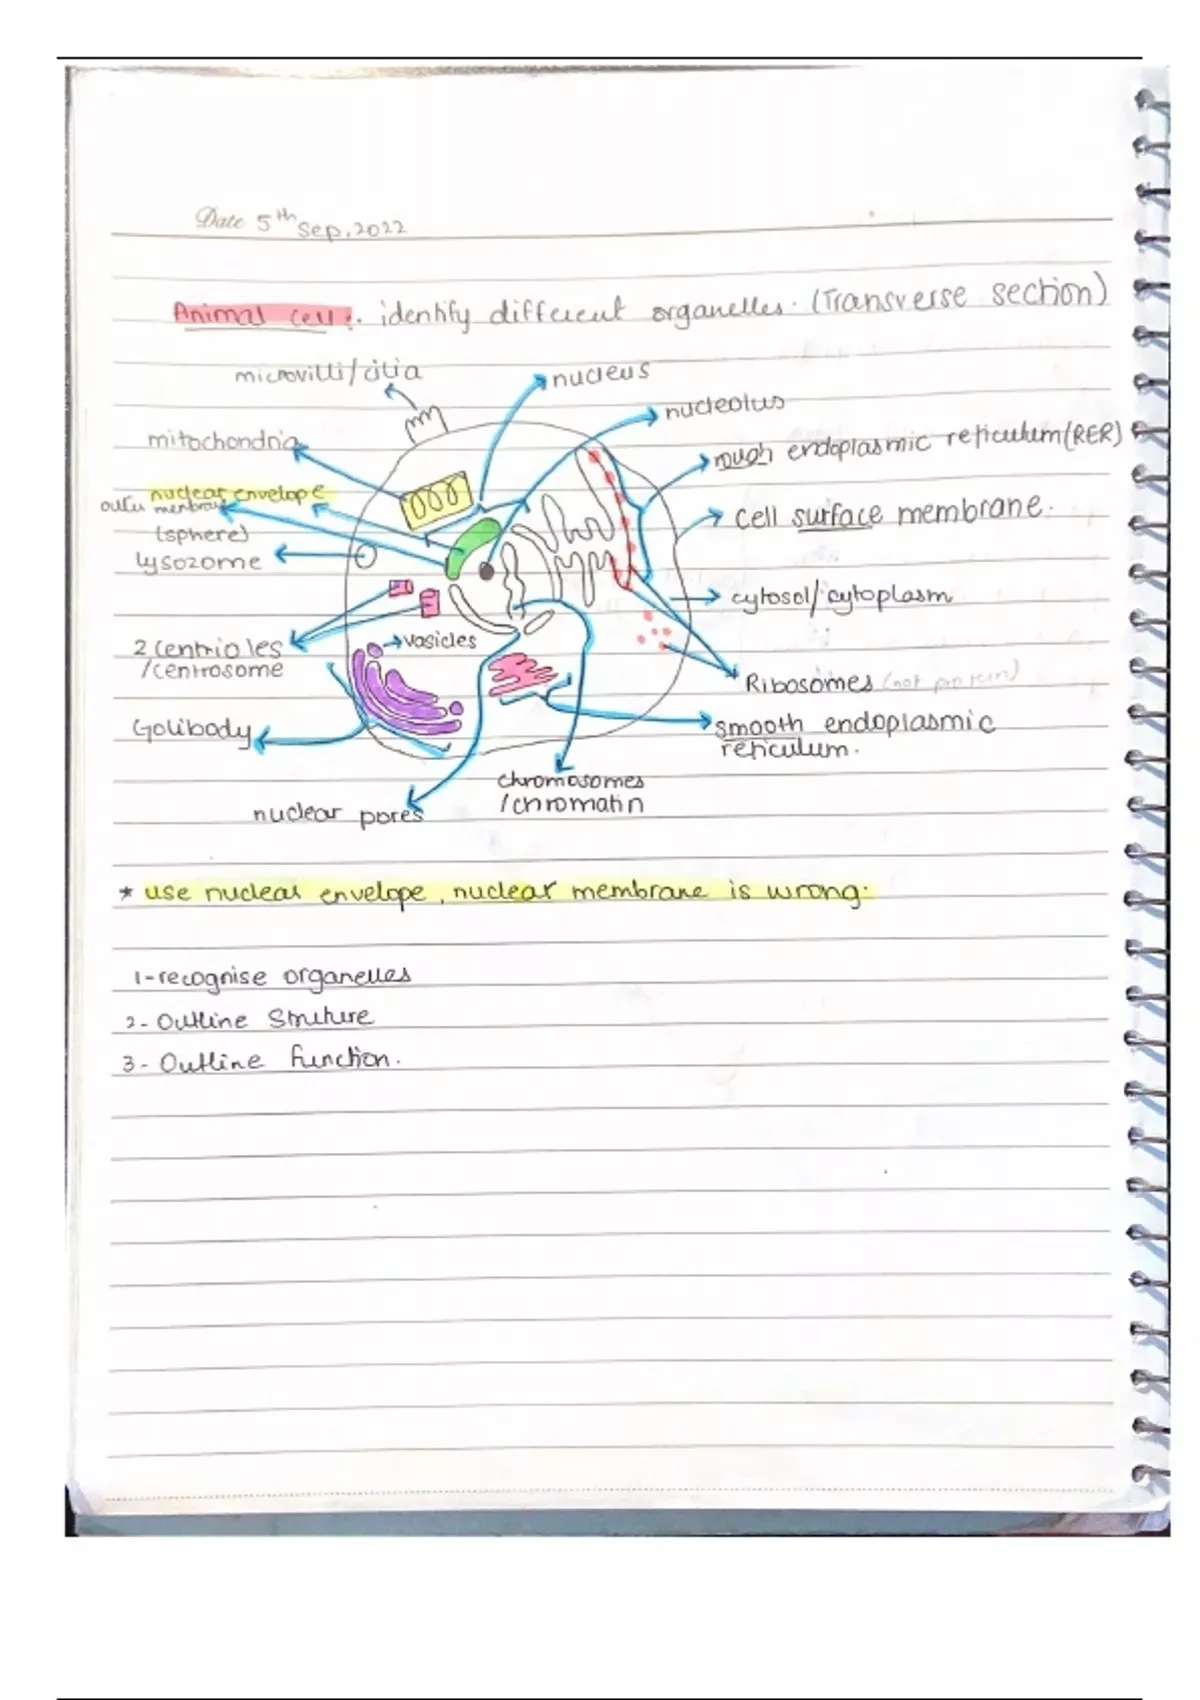 Date 5th Sep, 2022
Animal cell: identify different organelles. (Transverse section)
microvilli/cilia
nucleus
nucleolus
mitochondria
rough endoplasmic reticulum (RER)
nuclear envelope
outer membrane
cell surface membrane.
(sphere)
lysozome
cytosol/cytoplasm
2 centrioles
/centrosome
vasicles
Ribosomes (not protein)
Golibody
smooth endoplasmic
reticulum.
chromosomes
/chromatin
nuclear pores
* use nuclear envelope, nuclear membrane is wrong.
1-recognise organelles
2- Outline Struture
3- Outline function.